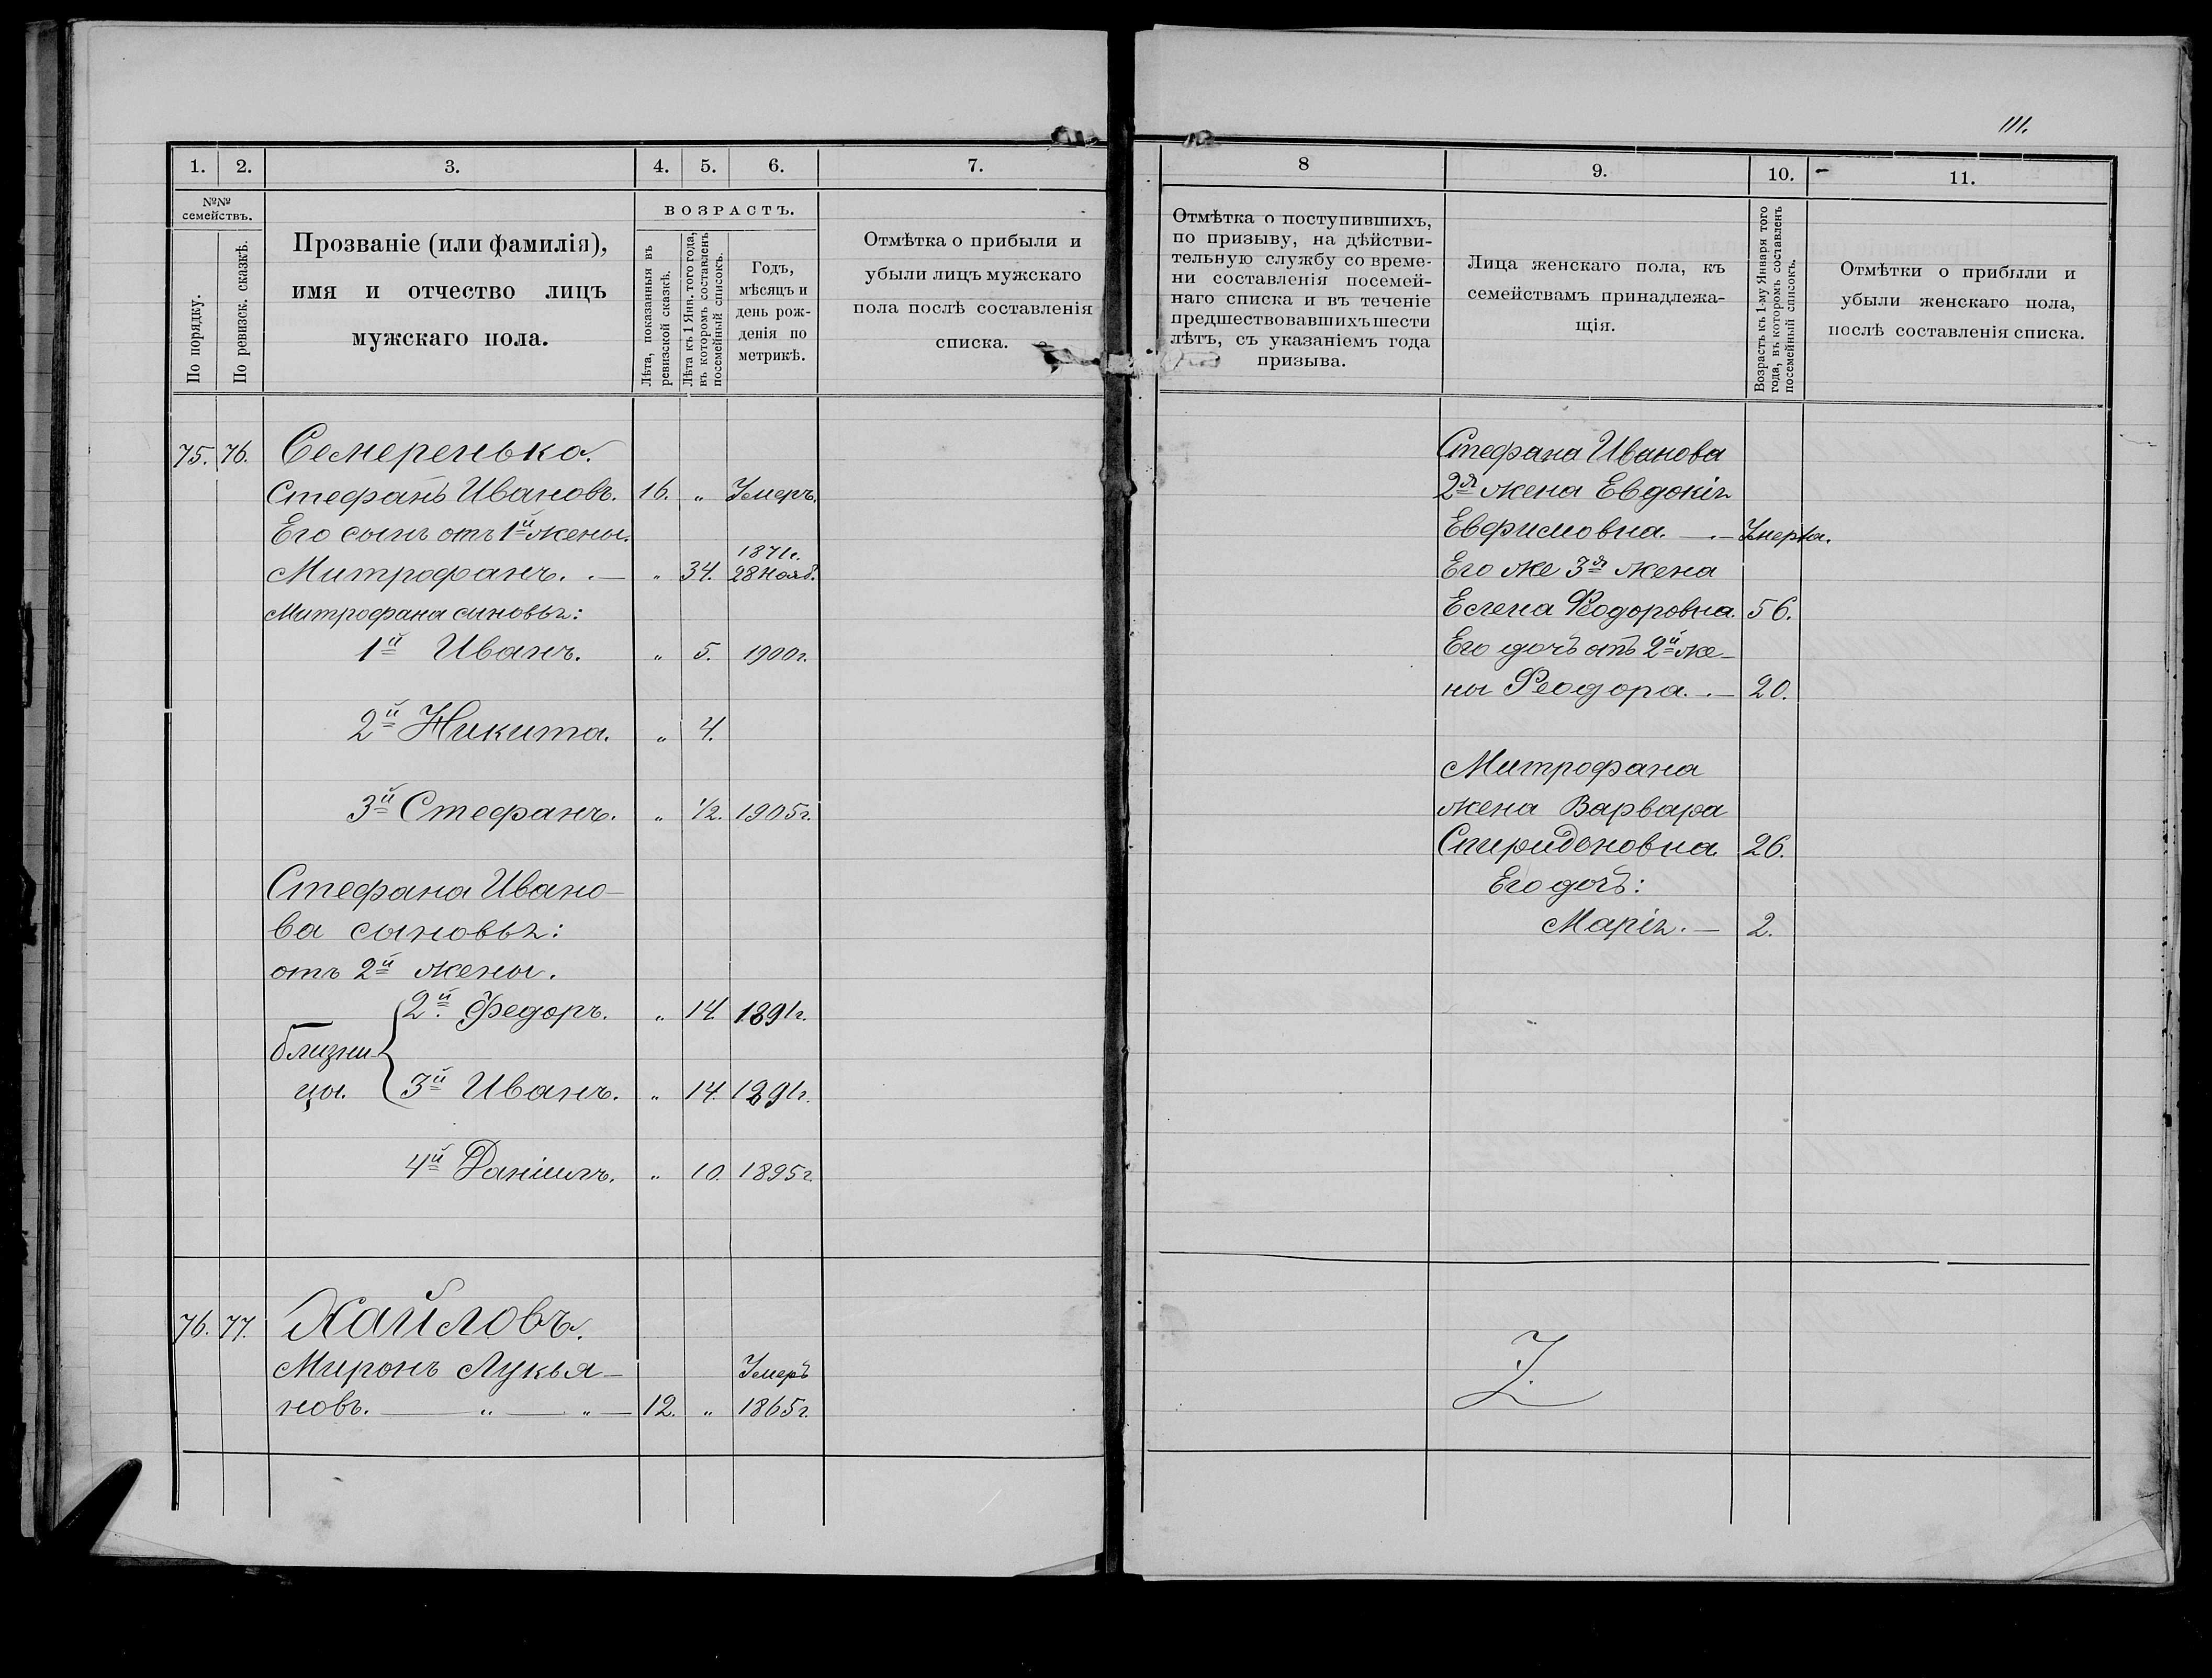 111.
1. 2. 3. 4. 5. 6. 7.
№№ семействъ.
По порядку.
По ревизск. сказкѣ.
Прозваніе (или фамилія),
имя и отчество лицъ
мужскаго пола.
ВОЗРАСТЪ.
Лѣта, показанныя въ
ревизской сказкѣ.
Лѣта къ 1 Янв. того года,
въ которомъ составленъ
посемейный списокъ.
Годъ,
мѣсяцъ и
день рож-
денія по
метрикѣ.
Отмѣтка о прибыли и
убыли лицъ мужскаго
пола послѣ составленія
списка.
75. 76. Семеренько.
Стефанъ Ивановъ. 16. „ Умеръ.
Его сынъ отъ 1й жены.
Митрофанъ. — „ 34. 1871г. 28 Нояб.
Митрофана сыновья:
1й Иванъ. „ 5. 1900г.
2й Никита. „ 4.
3й Стефанъ. „ 1/2. 1905г.
Стефана Ивано-
ва сыновья:
отъ 2й жены.
близни-
цы.
2й Федоръ. „ 14. 1891г.
3й Иванъ. „ 14. 1891г.
4й Даніилъ. „ 10. 1895г.
76. 77. Хайловъ.
Миронъ Лукья- Умеръ
новъ. — „ — „ — 12. „ 1865г.
8 9. 10. 11.
Отмѣтка о поступившихъ,
по призыву, на дѣйстви-
тельную службу со време-
ни составленія посемей-
наго списка и въ теченіе
предшествовавшихъ шести
лѣтъ, съ указаніемъ года
призыва.
Лица женскаго пола, къ
семействамъ принадлежа-
щія.
Возрастъ къ 1-му Января того
года, въ которомъ составленъ
посемейный списокъ.
Отмѣтки о прибыли и
убыли женскаго пола,
послѣ составленія списка.
Стефана Иванова
2я жена Евдокія
Евфимовна. — Умерла.
Его же 3я жена
Елена Феодоровна. 56.
Его дочь отъ 2й же-
ны Феодора. — 20.
Митрофана
жена Варвара
Спиридоновна 26.
Его дочь:
Марія. — 2.